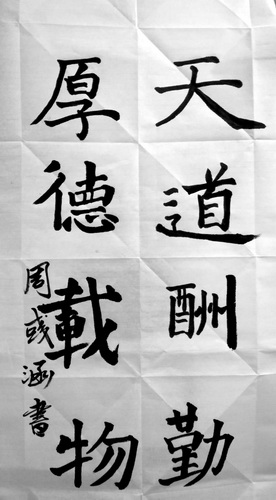 天道酬勤
厚德載物
周彧涵書